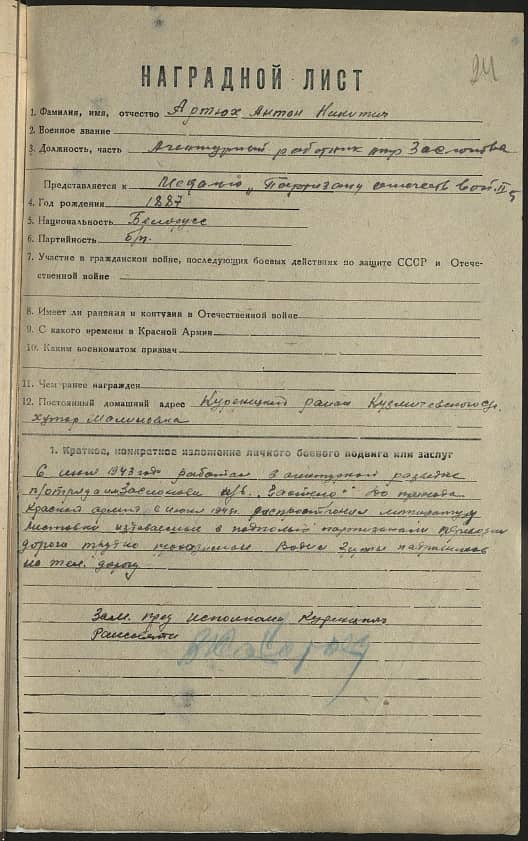 24
НАГРАДНОЙ ЛИСТ
1. Фамилия, имя, отчество Артюх Антон Никитич
2. Военное звание
3. Должность, часть Агентурный работник отр Заслонова
Представляется к Медалю „Партизану отечеств войны II ст
4. Год рождения 1887
5. Национальность Белорусс
6. Партийность б/п.
7. Участие в гражданской войне, последующих боевых действиях по защите СССР и Отече-
ственной войне
8. Имеет ли ранения и контузии в Отечественной войне
9. С какого времени в Красной Армии
10. Каким военкоматом призвач
11. Чем ранее награжден
12. Постоянный домашний адрес Куренецкий район Кузмичевского с/с.
хутор Малиновка
1. Краткое, конкретное изложение личного боевого подвига или заслуг
С июля 1943 года работал в агентурной разведке
п/отряда им Заслонова п/б. до прихода
Красной армии в июле 1944г. литературу
листовки издаваемые в подполье партизанами
дорога трудно Водил группы
по той дороге
Зам. пред исполкому Куренецкого
Райсовета